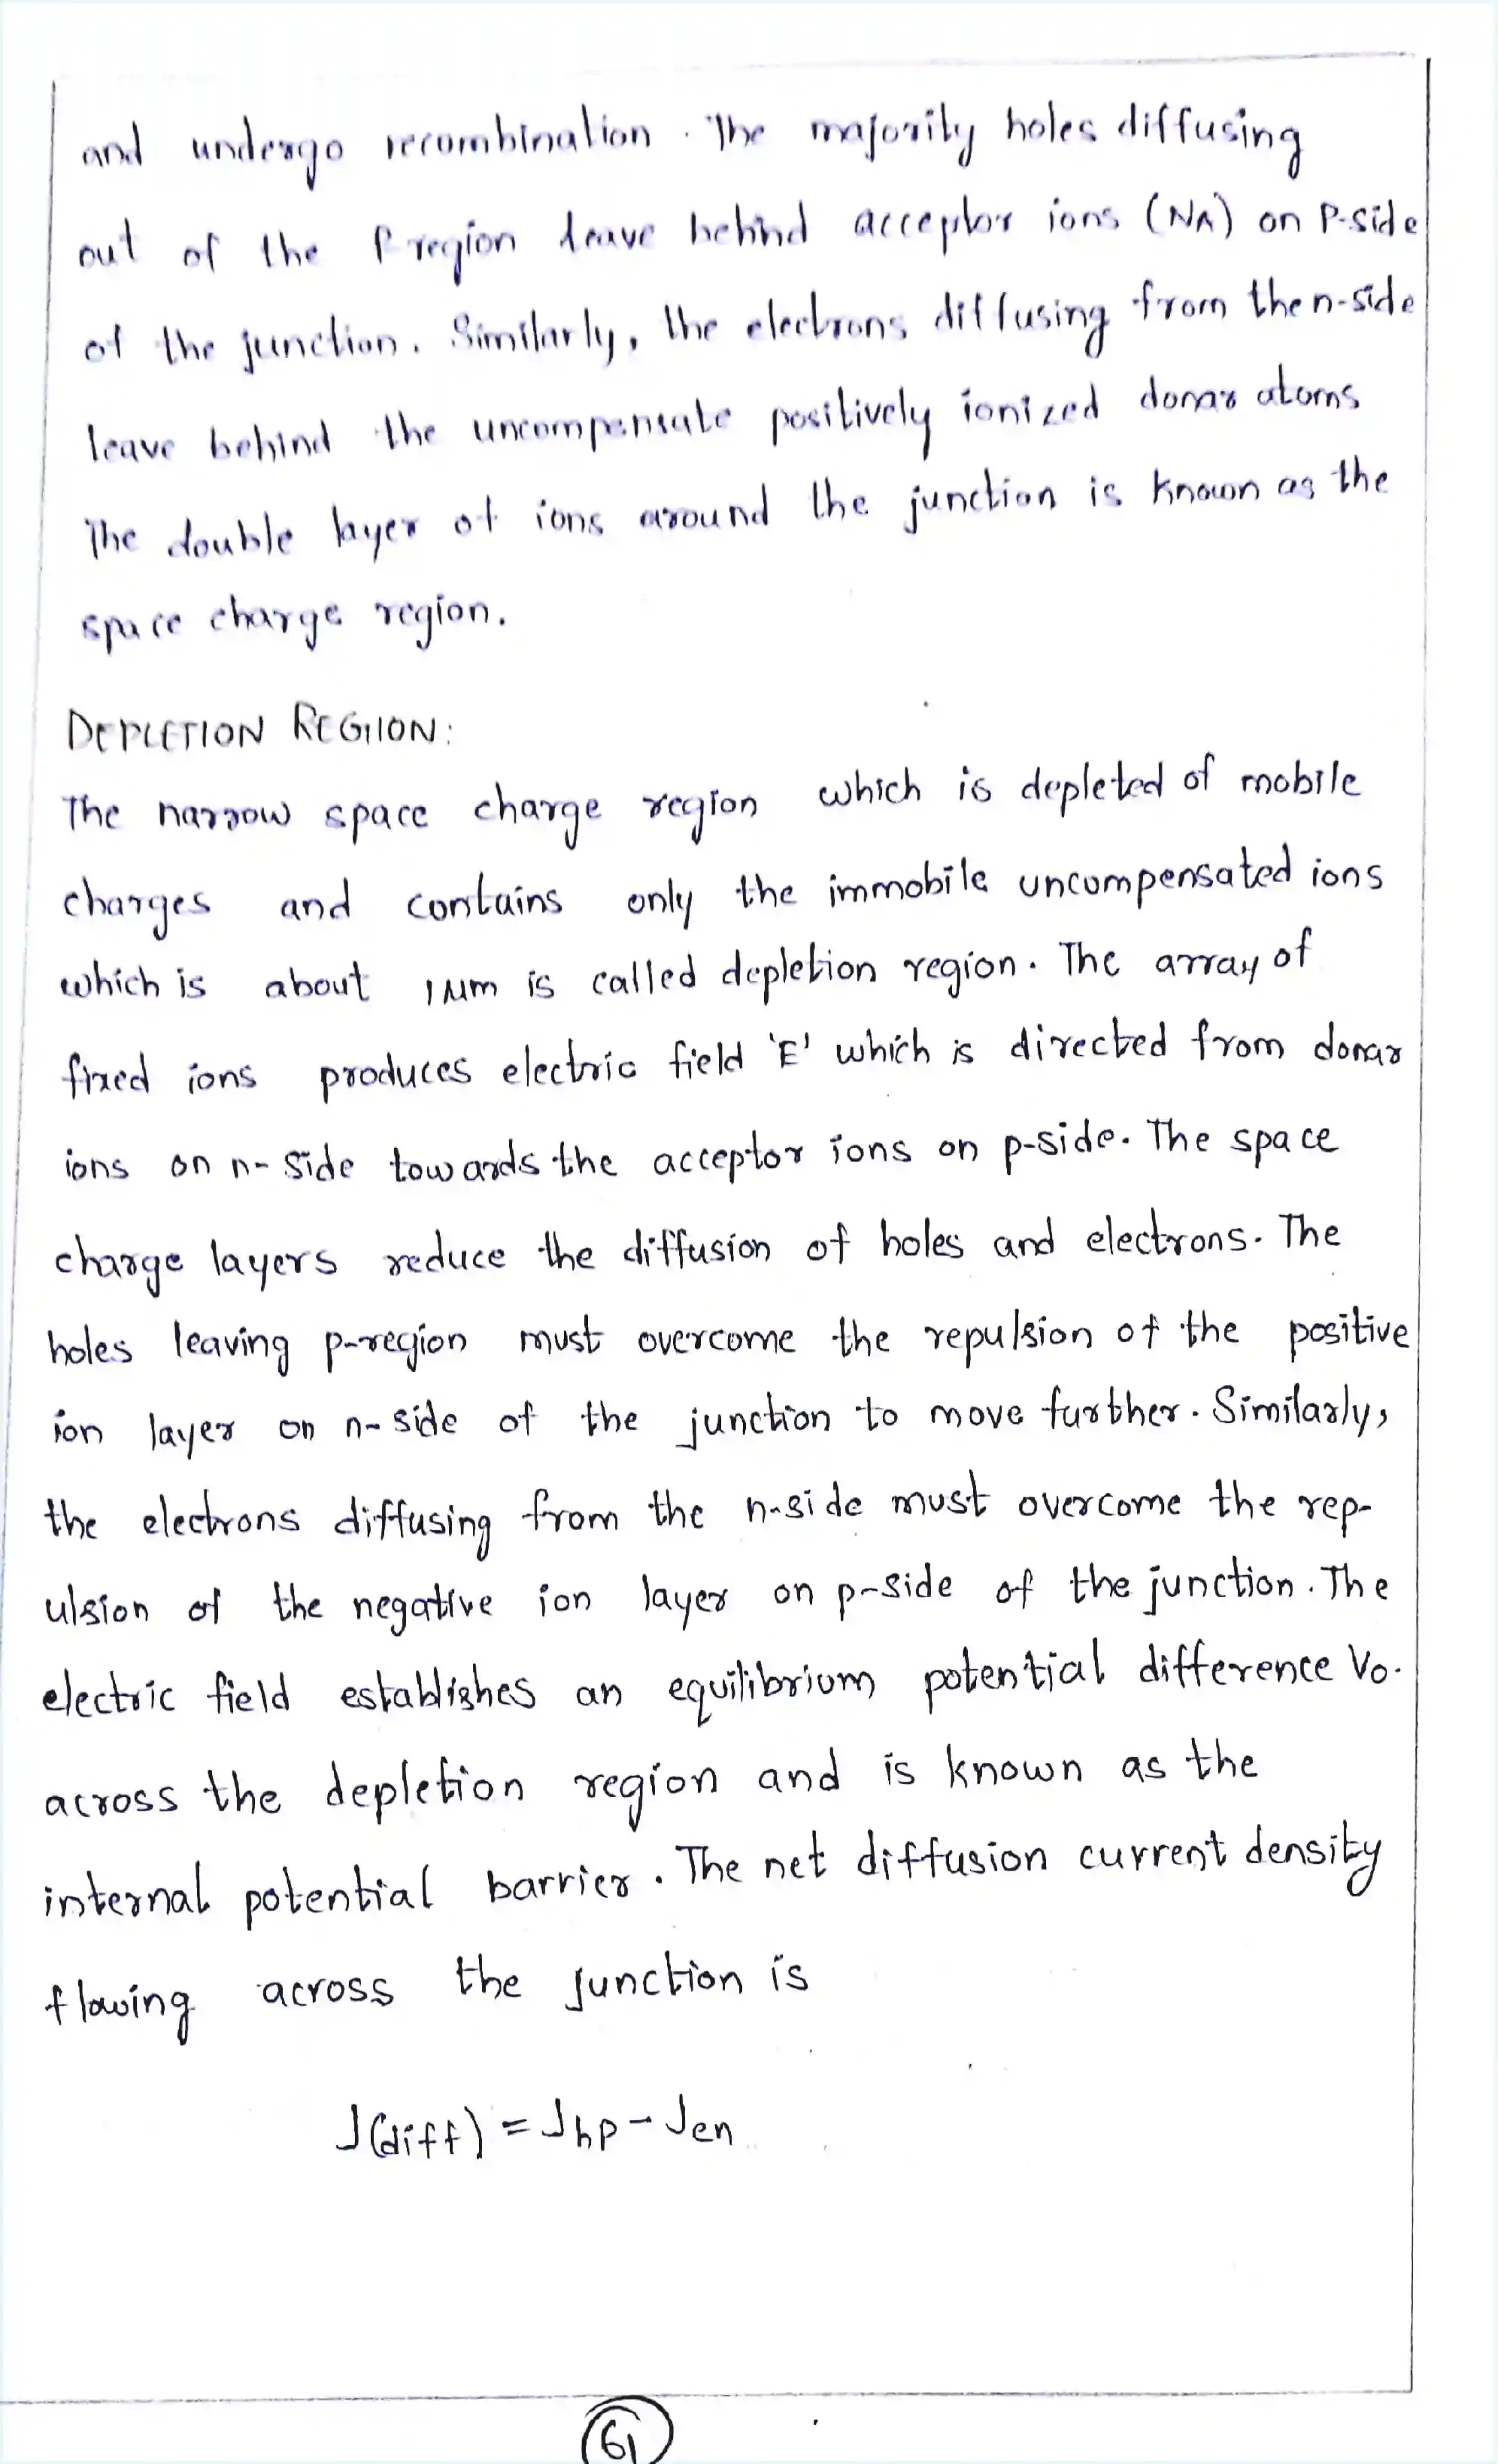 and undergo recombination. The majority holes diffusing
out of the P-region leave behind acceptor ions (NA) on P-side
of the junction. Similarly, the electrons diffusing from the n-side
leave behind the uncompensate positively ionized donar atoms
The double layer of ions around the junction is known as the
space charge region.
DEPLETION REGIION:
The narrow space charge region which is depleted of mobile
charges and contains only the immobile uncompensated ions
which is about 1μm is called depletion region. The array of
fixed ions produces electric field 'E' which is directed from donar
ions on n-side towards the acceptor ions on p-side. The space
charge layers reduce the diffusion of holes and electrons. The
holes leaving p-region must overcome the repulsion of the positive
ion layer on n-side of the junction to move further. Similarly,
the electrons diffusing from the n-side must overcome the rep-
ulsion of the negative ion layer on p-side of the junction. The
electric field establishes an equilibrium potential difference Vo.
across the depletion region and is known as the
internal potential barrier. The net diffusion current density
flowing across the junction is
J(diff) = Jhp - Jen
61